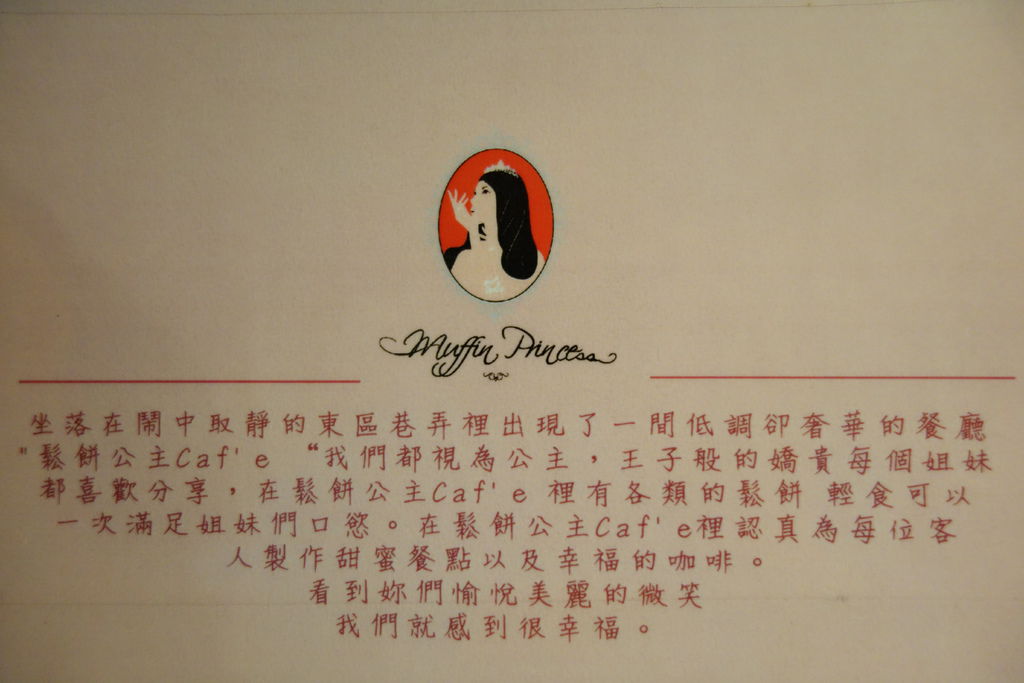 Muffin Princess
坐落在鬧中取靜的東區巷弄裡出現了一間低調卻奢華的餐廳
"鬆餅公主Caf'e “我們都視為公主，王子般的嬌貴每個姐妹
都喜歡分享，在鬆餅公主Caf'e 裡有各類的鬆餅 輕食可以
一次滿足姐妹們口慾。在鬆餅公主Caf'e裡認真為每位客
人製作甜蜜餐點以及幸福的咖啡。
看到妳們愉悅美麗的微笑
我們就感到很幸福。